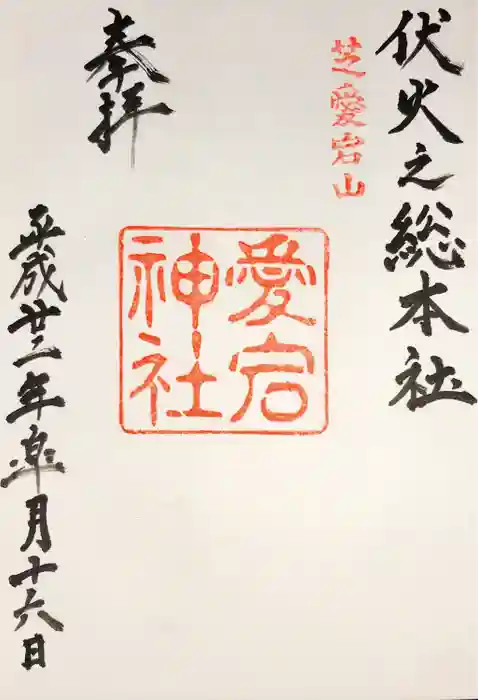 伏火之総本社
芝愛宕山
愛宕
神社
奉拝
平成廿二年皐月十六日